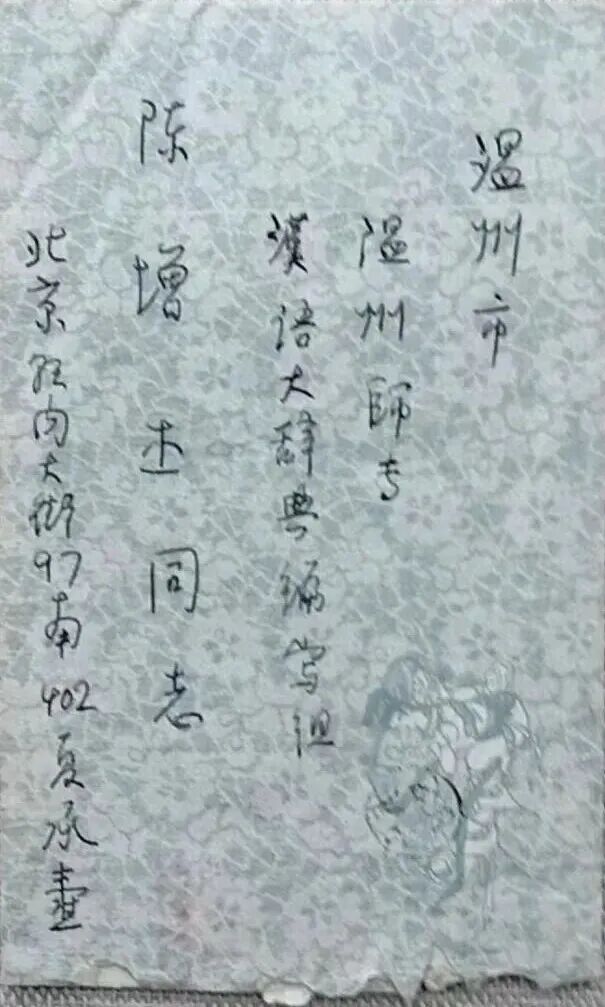 温州市
温州師专
漢语大辞典编写组
陈增杰同志
北京朝内大街97南402夏承燾